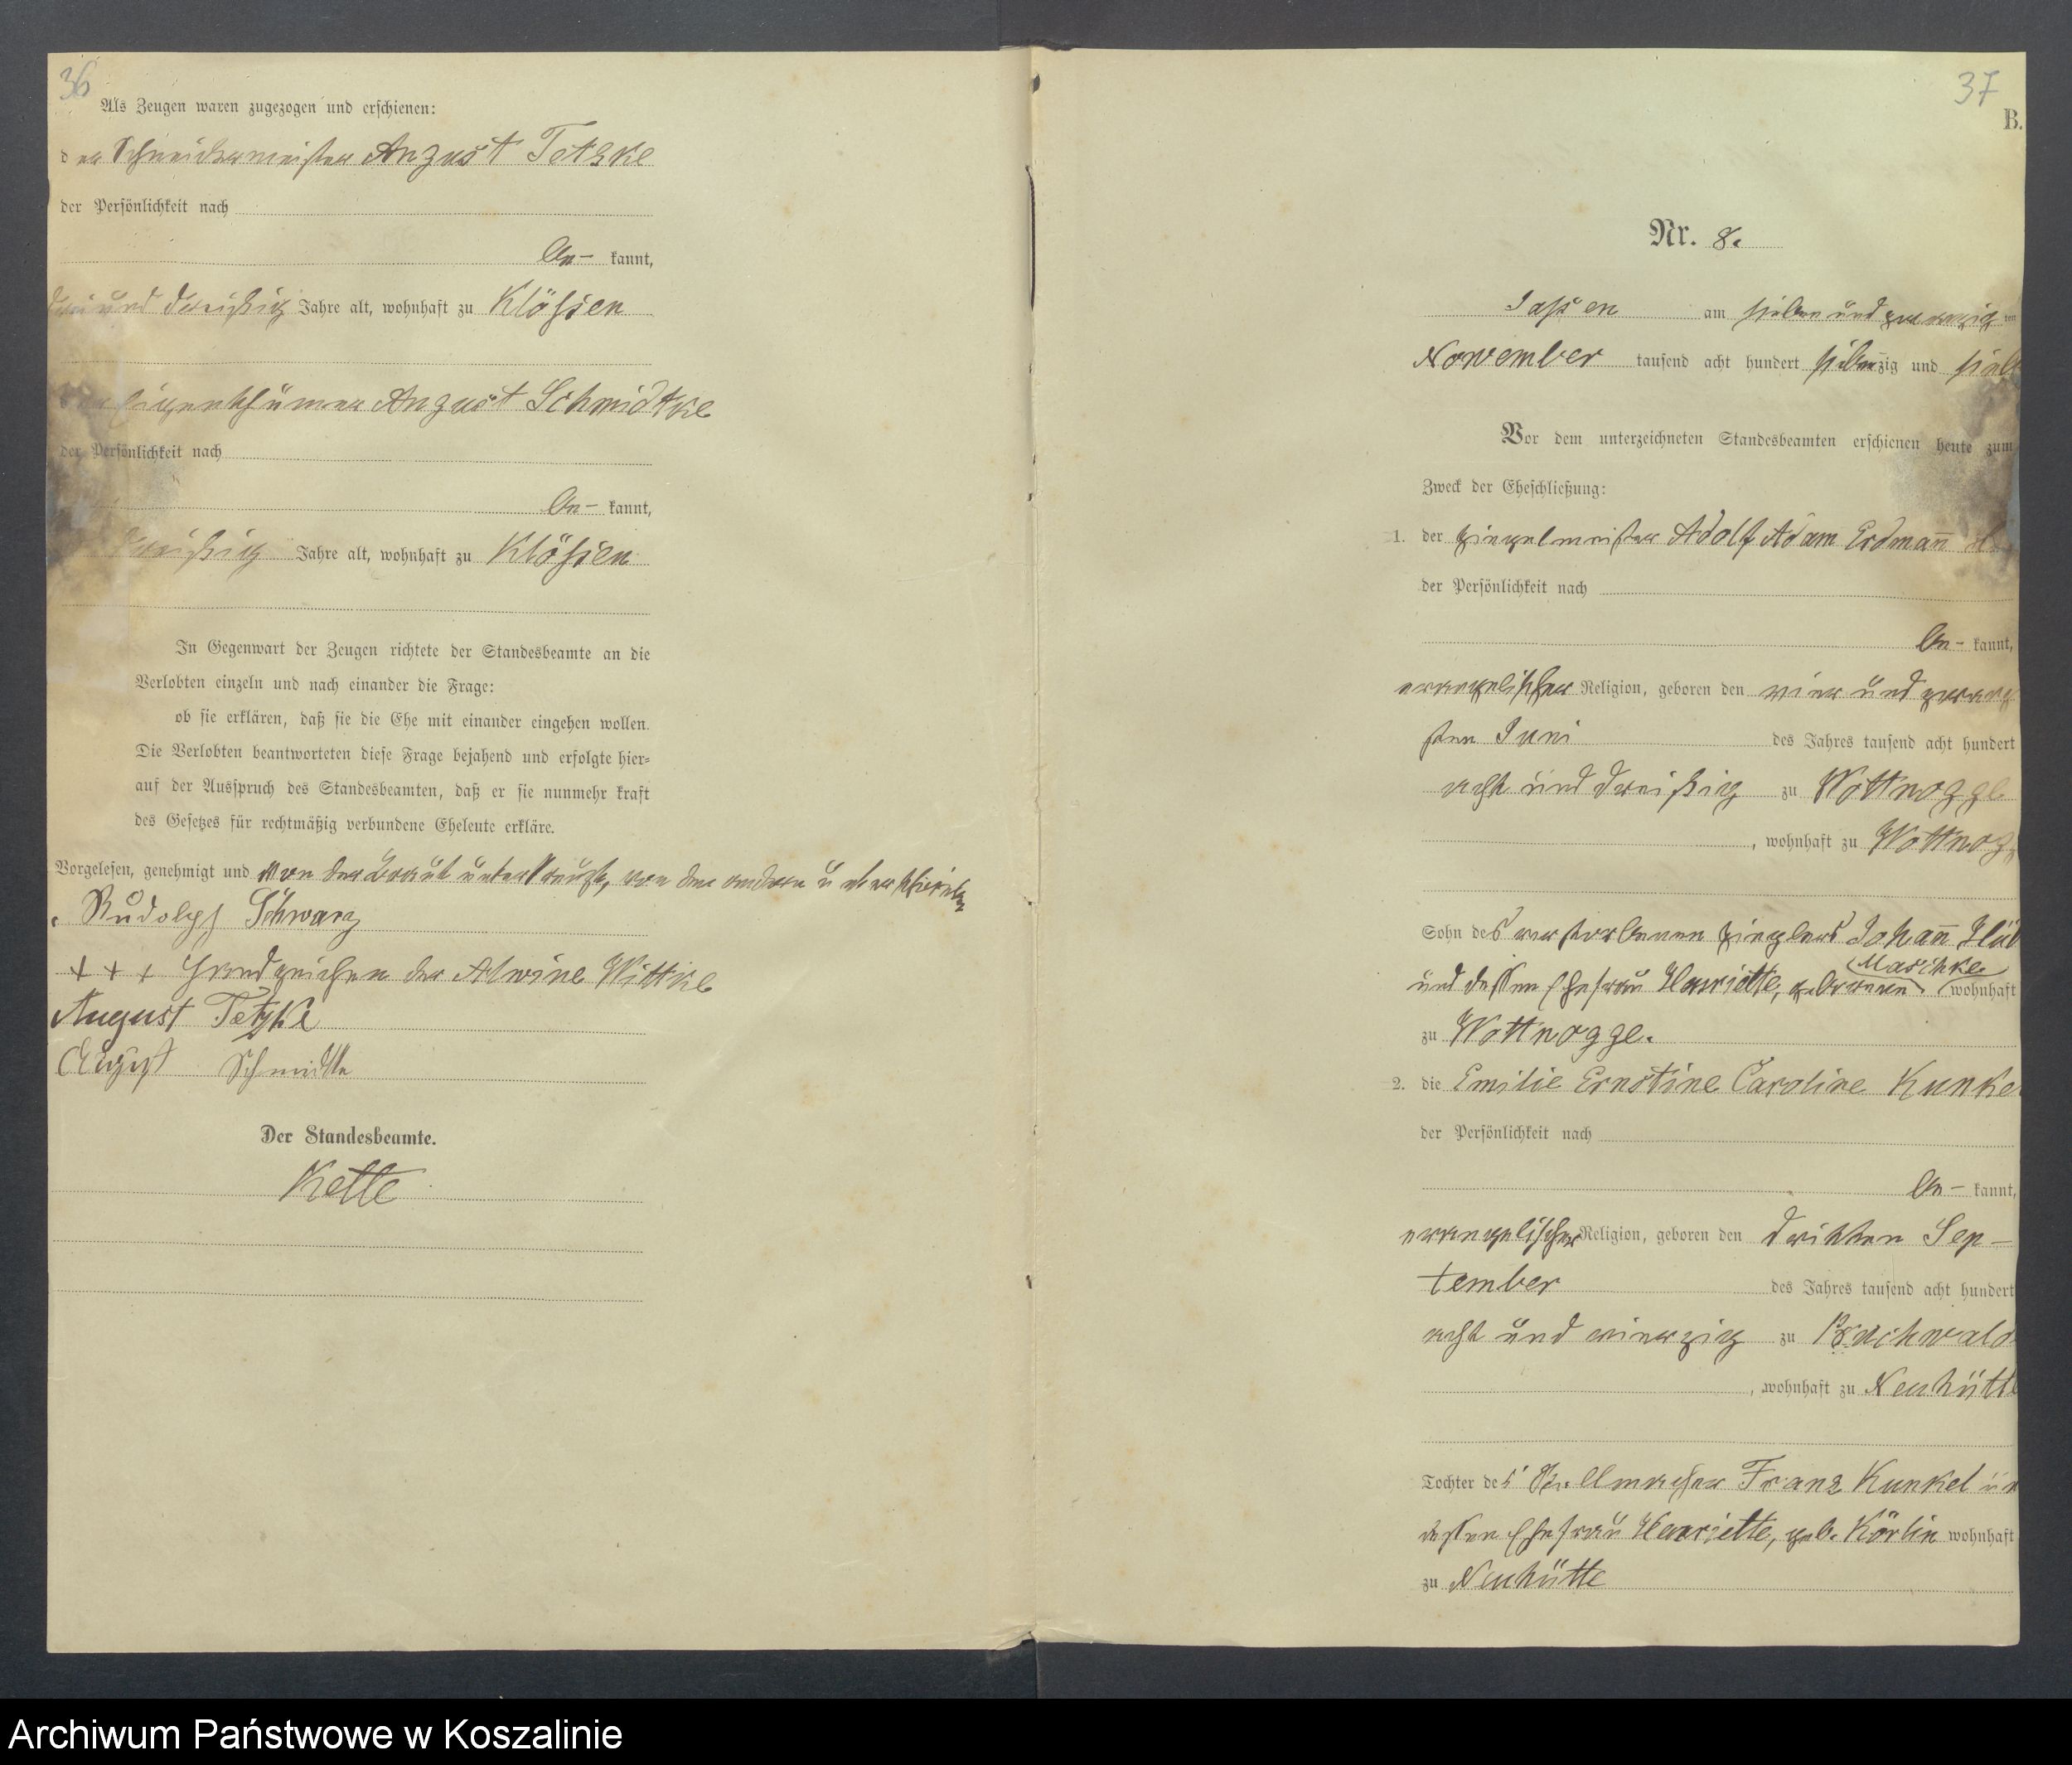 36
Als Zeugen waren zugezogen und erschienen:
der Schneidermeister August Tetzke
der Persönlichkeit nach
be- kannt,
drei und dreißig Jahre alt, wohnhaft zu Klößen
Eigenthümer August Schmidtke
der Persönlichkeit nach
be- kannt,
dreißig Jahre alt, wohnhaft zu Klößen
In Gegenwart der Zeugen richtete der Standesbeamte an die
Verlobten einzeln und nach einander die Frage:
ob sie erklären, daß sie die Ehe mit einander eingehen wollen.
Die Verlobten beantworteten diese Frage bejahend und erfolgte hier-
auf der Ausspruch des Standesbeamten, daß er sie nunmehr kraft
des Gesetzes für rechtmäßig verbundene Eheleute erkläre.
Vorgelesen, genehmigt und von der Braut unterkreuzt, von den andern unterschrieben
Rudolph Schwarz
+ + + Handzeichen der Alwine Wittke
August Tetzke
August Schmidtke
Der Standesbeamte.
Kette
37
B.
Nr. 8.
Saßen am sieben und zwanzig ten
November tausend acht hundert siebenzig und sieb
Vor dem unterzeichneten Standesbeamten erschienen heute zum
Zweck der Eheschließung:
1. der Ziegelmeister Adolf Adam Erdmann
der Persönlichkeit nach
be- kannt,
evangelischer Religion, geboren den vier und zwanzig
sten Juni des Jahres tausend acht hundert
acht und dreißig zu Wottnogge
, wohnhaft zu Wottnogg
Sohn des verstorbenen Zieglers Johann Hüb
Maschke
und dessen Ehefrau Henriette, geborenen wohnhaft
zu Wottnogge.
2. die Emilie Ernstine Caroline Kunkel
der Persönlichkeit nach
be- kannt,
evangelischer Religion, geboren den dritten Sep-
tember des Jahres tausend acht hundert
acht und vierzig zu Buchwald
, wohnhaft zu Neuhütte
Tochter des Stellmacher Franz Kunkel un
dessen Ehefrau Henriette, geb. Körlin wohnhaft
zu Neuhütte
Archiwum Państwowe w Koszalinie